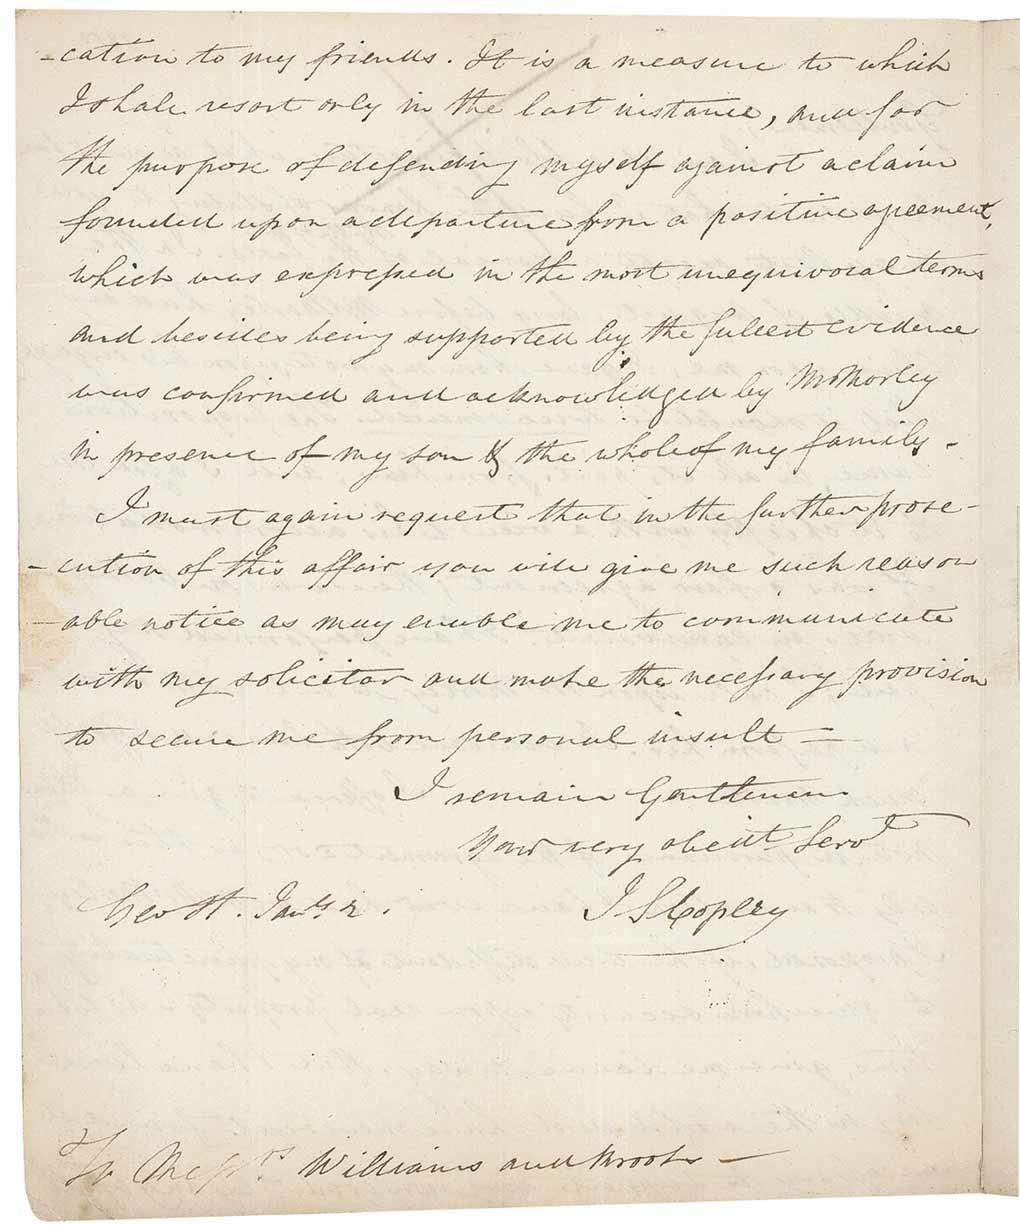 -cation to my friends. It is a measure to which
I shall resort only in the last instance, and for
the purpose of defending myself against a claim
founded upon a departure from a positive agreement,
which was expressed in the most unequivocal terms
and besides being supported by the fullest evidence
was confirmed and acknowledged by Mr Morley
in presence of my son & the whole of my family.
I must again request that in the further prose-
-cution of this affair you will give me such reason
-able notice as may enable me to communicate
with my solicitor and make the necessary provision
to secure me from personal insult —
I remain Gentlemen
Your very obedt Servt
J S Copley
Geo St.
To Messrs Williams and Brooks —